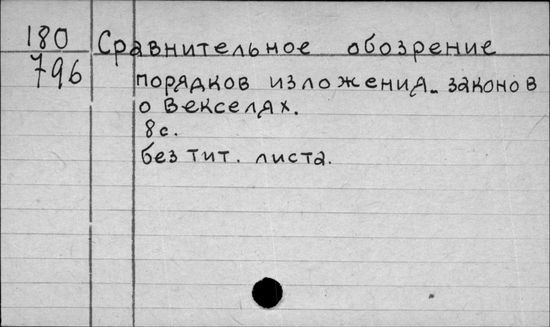 180
796
Сравнительное обозрение
порядков изложения законов
о векселях.
8 с.
без тит. листа.